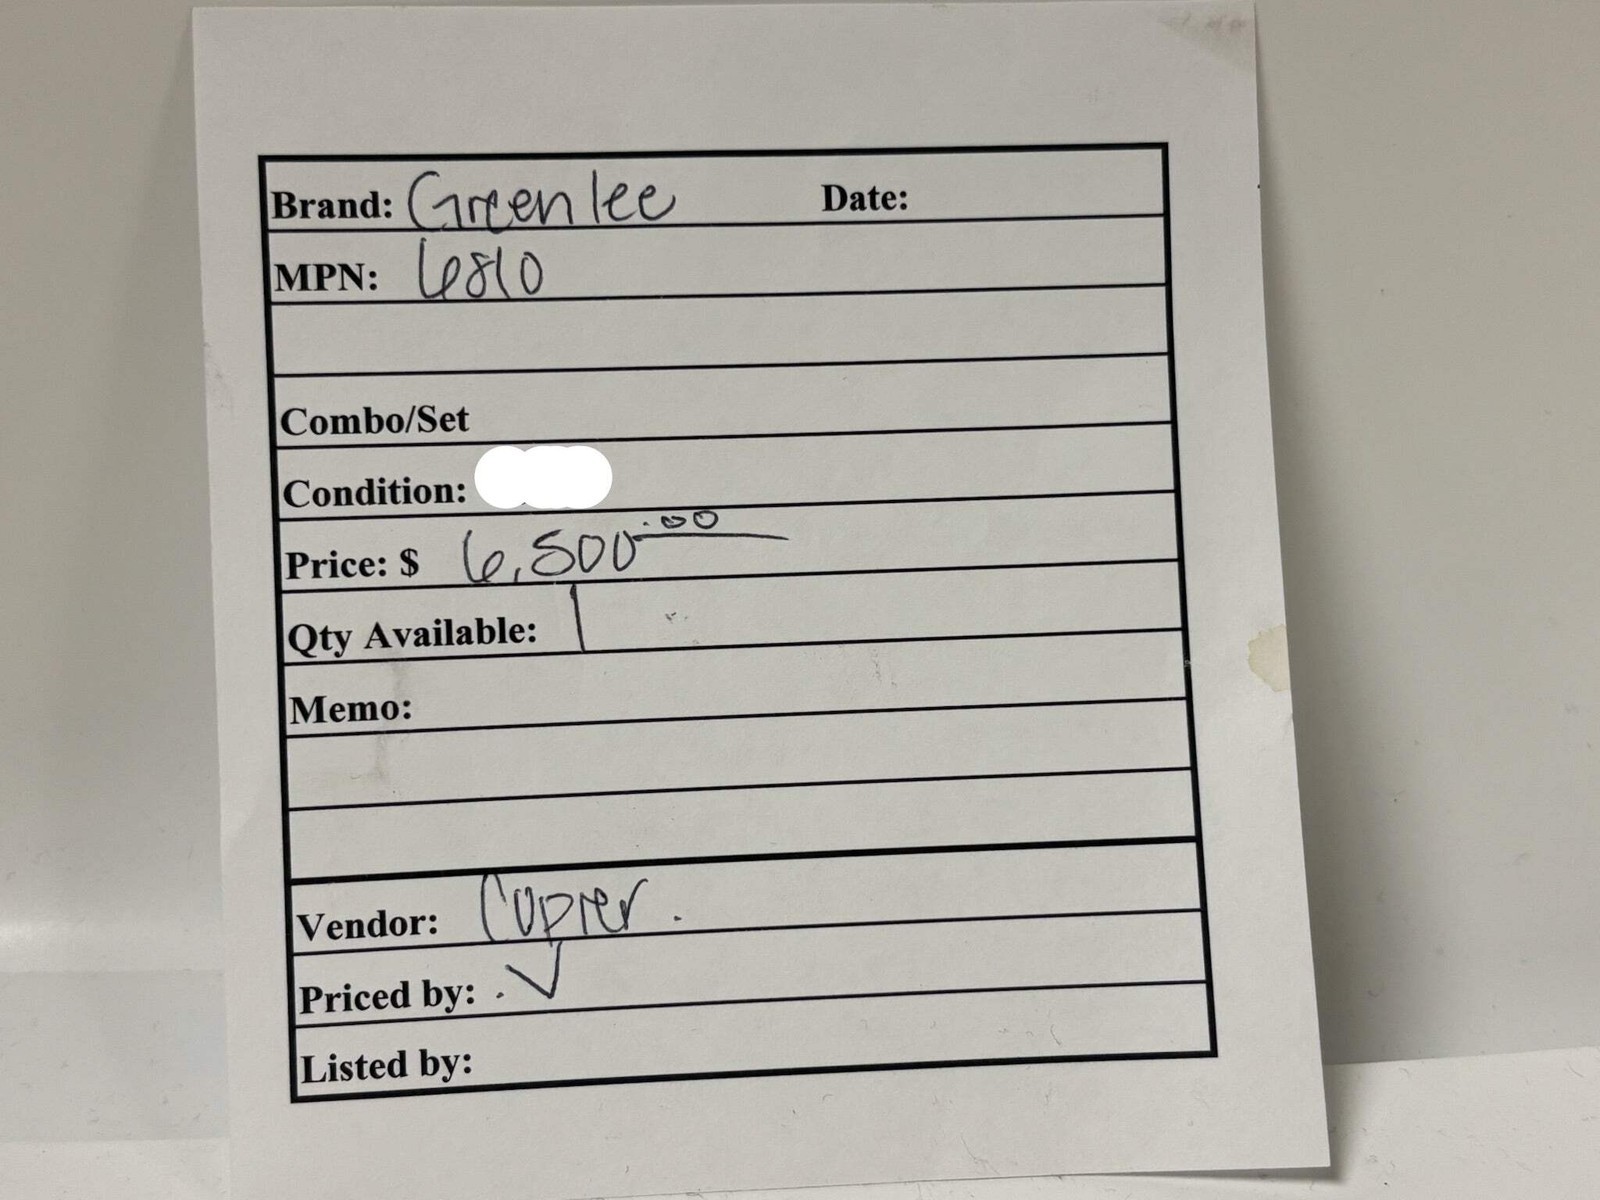 Brand: Greenlee Date:
MPN: 6810
Combo/Set
Condition:
Price: $ 6,500.00
Qty Available: 1
Memo:
Vendor: Copier.
Priced by: . V
Listed by: